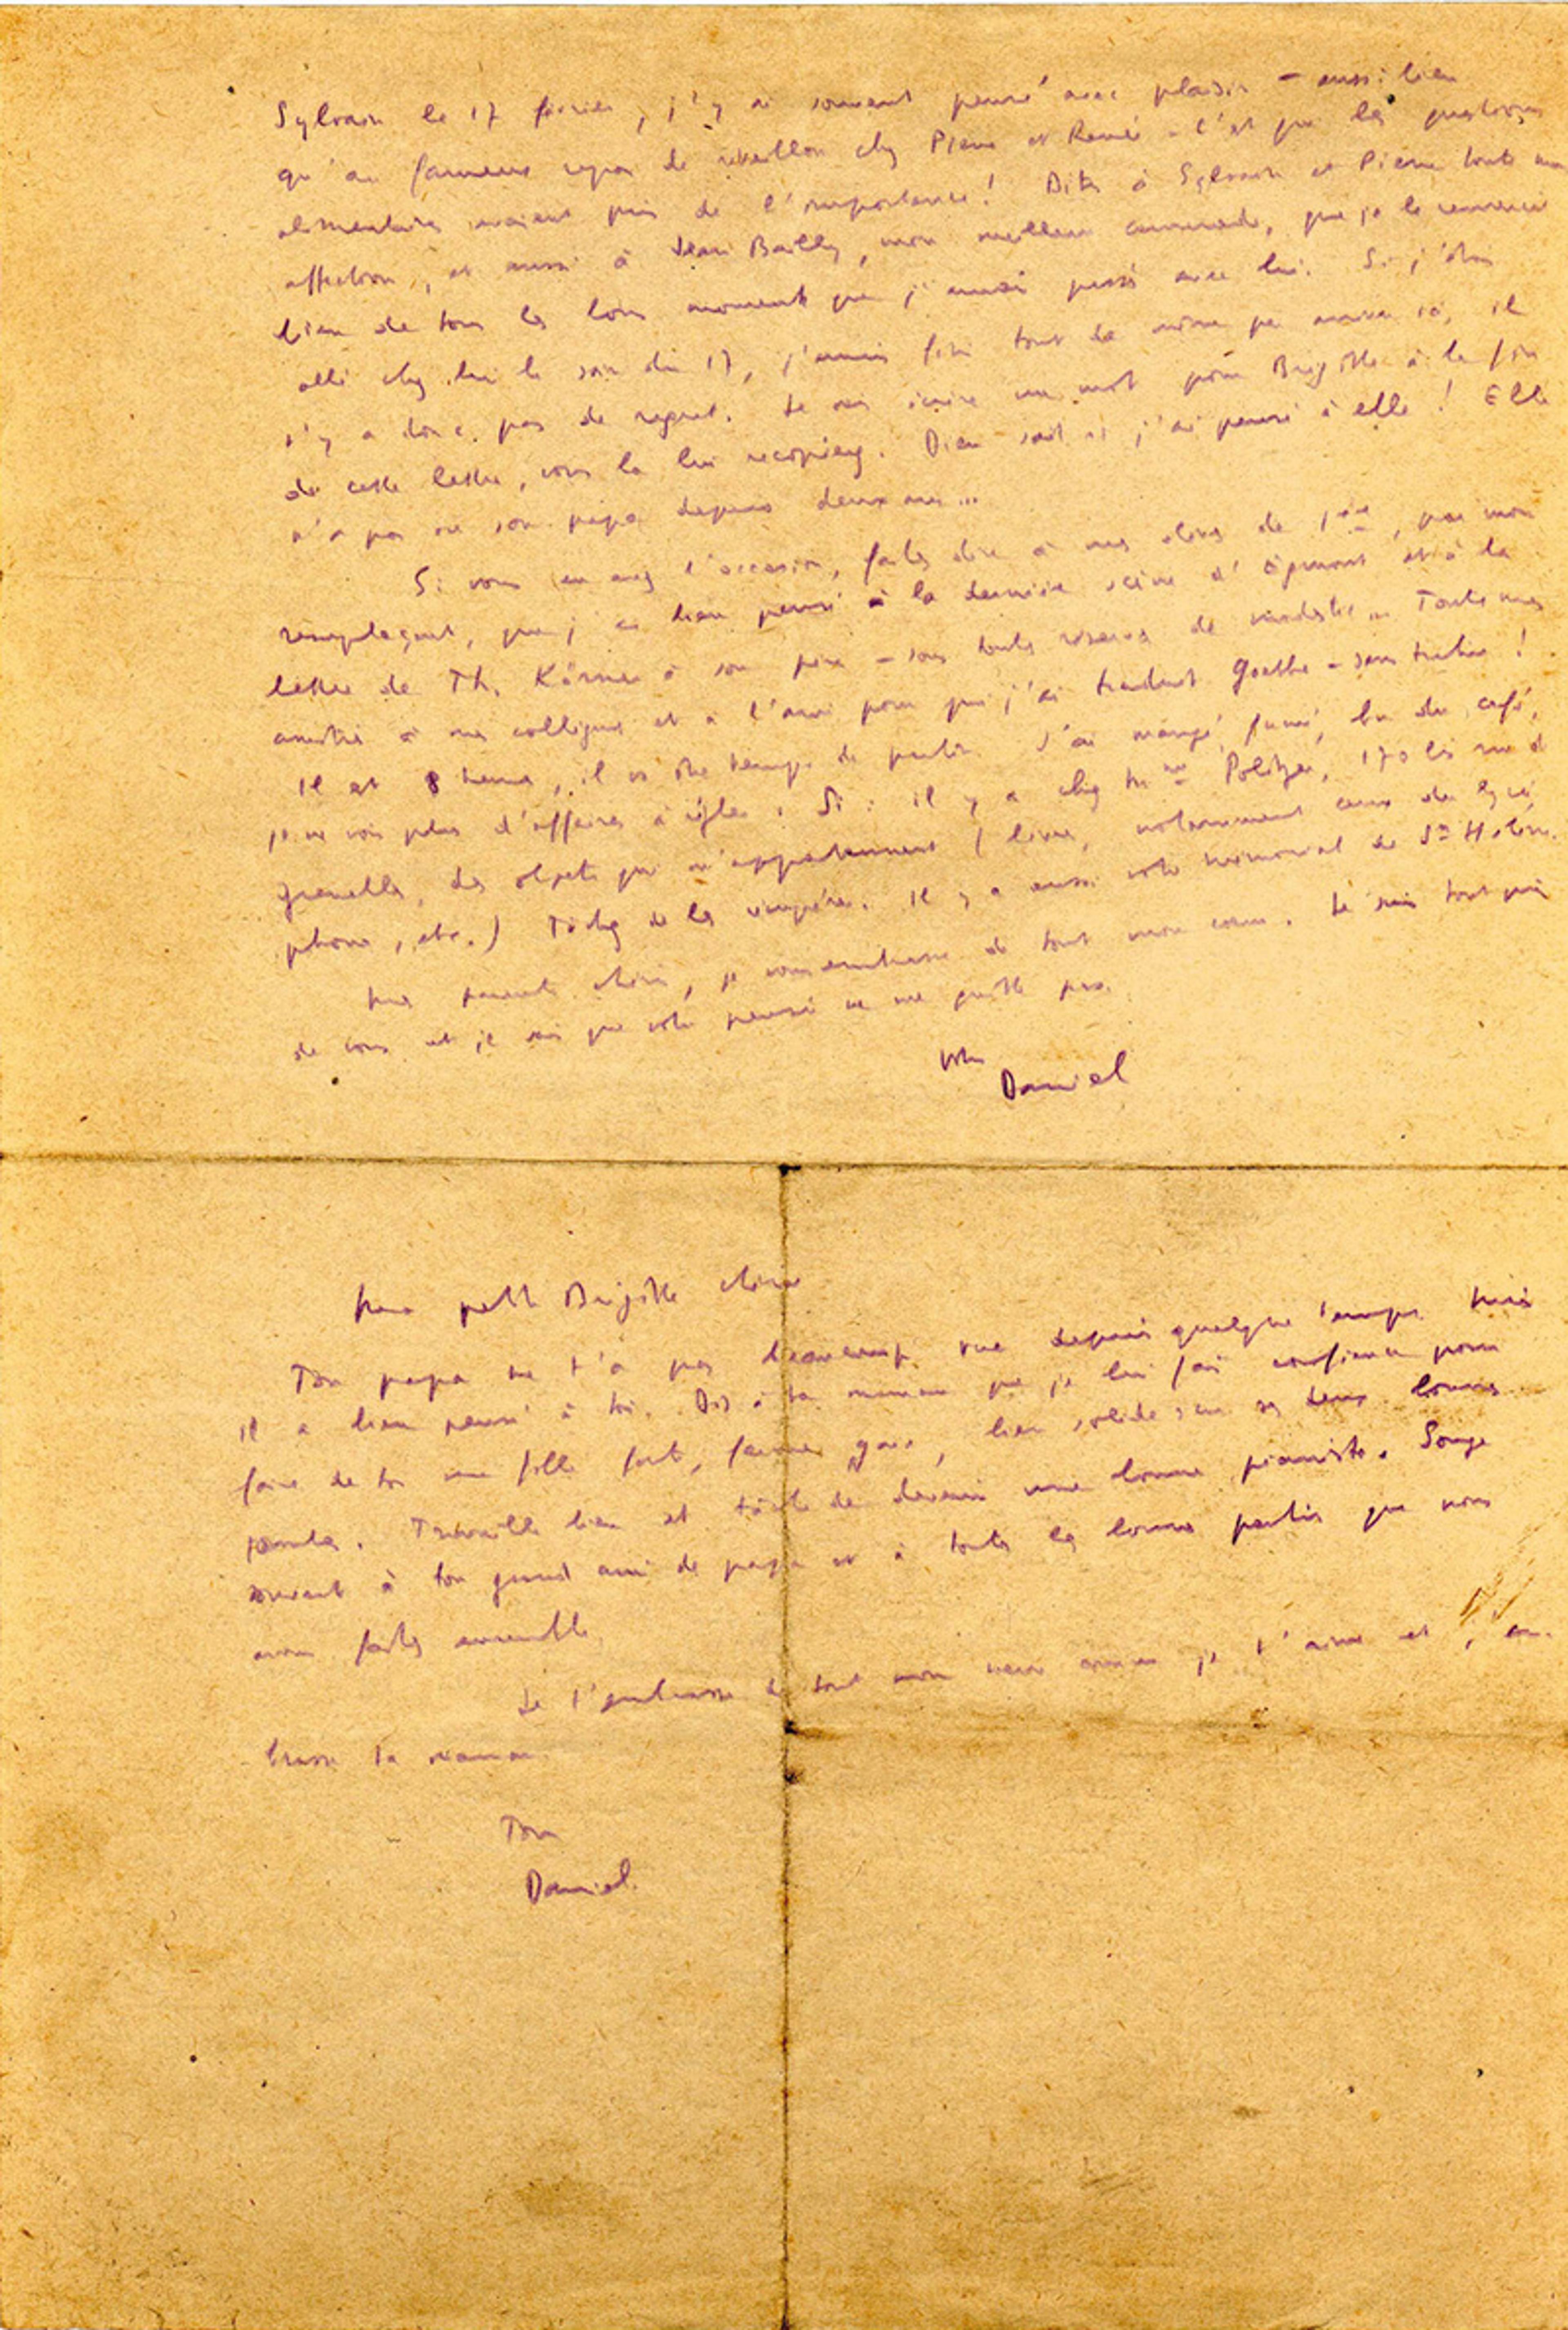 Sylvain le 17 février, j'y ai souvent pensé avec plaisir – aussi bien
qu'au fameux repas de réveillon chez Pierre et Renée – c'est que les questions
alimentaires avaient pris de l'importance ! Dites à Sylvain et Pierre toute mon
affection, et aussi à Jean Bailly, mon meilleur camarade, que je le remercie
bien de tous les bons moments que j'aurai passés avec lui. Si j'étais
allé chez lui le soir du 17, j'aurais fini tout de même par arriver ici, il
n'y a donc pas de regret. Je vais écrire un mot pour Brigitte à la fin
de cette lettre, vous la lui recopierez. Dieu sait si j'ai pensé à elle ! Elle
n'a pas vu son papa depuis deux ans...
Si vous en avez l'occasion, faites dire à mes élèves de 1ère, par mon
remplaçant, que j'ai bien pensé à la dernière scène d'Egmont et à la
lettre de Th. Körner à son père – sous toutes réserves de modestie... Toutes mes
amitiés à mes collègues et à l'ami pour qui j'ai traduit Goethe – sans trahir !
Il est 8 heures, il va être temps de partir. J'ai mangé, fumé, bu du café,
je ne vois plus d'affaires à régler. Si : il y a chez Mme Politzer, 170 bis rue de
Grenelle, des objets qui m'appartiennent (livres, notamment ceux du lycée,
phono, etc.) Tâchez de les récupérer. Il y a aussi votre mémorial de Ste Hélène.
Mes parents chéris, je vous embrasse de tout mon cœur. Je suis tout près
de vous et je sais que votre pensée ne me quitte pas.
Votre
Daniel
Ma petite Brigitte chérie
Ton papa ne t'a pas beaucoup vue depuis quelque temps mais
il a bien pensé à toi. Dis à ta maman que je lui fais confiance pour
faire de toi une fille forte, gaie, bien solide sur ses deux bonnes
jambes. Travaille bien et tâche de devenir une bonne pianiste. Songe
souvent à ton grand ami de papa et à toutes les bonnes parties que nous
avons faites ensemble.
Je t'embrasse de tout mon cœur comme je t'aime et em-
brasse ta maman.
Ton
Daniel.